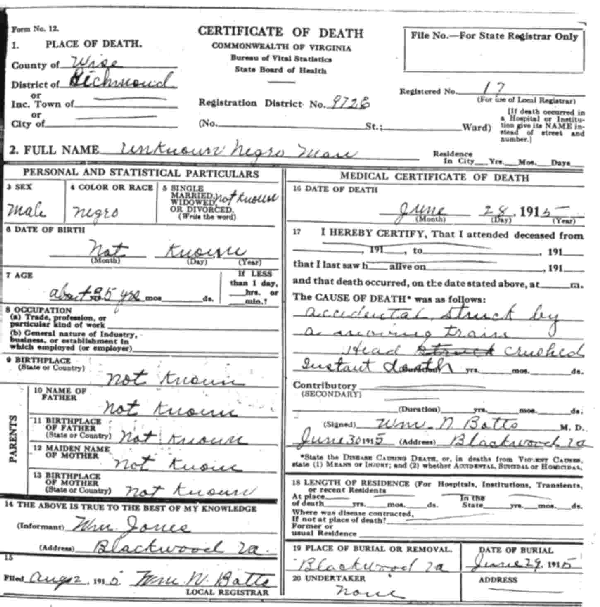 Form No. 12.
CERTIFICATE OF DEATH
COMMONWEALTH OF VIRGINIA
Bureau of Vital Statistics
State Board of Health
File No.—For State Registrar Only
1. PLACE OF DEATH.
County of Wise
District of Richmond
or
Inc. Town of
or
City of
Registration District No. 972B
Registered No. 17
(For use of Local Registrar)
(No. St.; Ward)
[If death occurred in
a Hospital or Institu-
tion give its NAME in-
stead of street and
number.]
2. FULL NAME Unknown Negro Man
Residence
In City Yrs. Mos. Days
PERSONAL AND STATISTICAL PARTICULARS
3 SEX
Male
4 COLOR OR RACE
Negro
5 SINGLE
MARRIED,
WIDOWED,
OR DIVORCED.
(Write the word)
not known
6 DATE OF BIRTH
Not Known
(Month) (Day) (Year)
7 AGE
about 35 yrs. mos. ds.
If LESS
than 1 day,
hrs. or
min.?
8 OCCUPATION
(a) Trade, profession, or
particular kind of work
(b) General nature of Industry,
business, or establishment in
which employed (or employer)
9 BIRTHPLACE
(State or Country)
not Known
PARENTS
10 NAME OF
FATHER
not Known
11 BIRTHPLACE
OF FATHER
(State or Country)
Not Known
12 MAIDEN NAME
OF MOTHER
Not Known
13 BIRTHPLACE
OF MOTHER
(State or Country)
Not Known
14 THE ABOVE IS TRUE TO THE BEST OF MY KNOWLEDGE
(Informant) Wm Jones
(Address) Blackwood Va.
15
Filed Aug 2, 1915 Wm N. Botts
LOCAL REGISTRAR
MEDICAL CERTIFICATE OF DEATH
16 DATE OF DEATH
June 28, 1915
(Month) (Day) (Year)
17 I HEREBY CERTIFY, That I attended deceased from
, 191 , to , 191
that I last saw h alive on , 191
and that death occurred, on the date stated above, at m.
The CAUSE OF DEATH* was as follows:
Accidental struck by
a moving train
Head struck crushed
Instant death yrs. mos. ds.
Contributory
(SECONDARY)
(Duration) yrs. mos. ds.
(Signed) Wm. N Botts M. D.
June 30 1915 (Address) Blackwood Va
*State the DISEASE CAUSING DEATH, or, in deaths from VIOLENT CAUSES,
state (1) MEANS OF INJURY; and (2) whether ACCIDENTAL, SUICIDAL or HOMICIDAL.
18 LENGTH OF RESIDENCE (For Hospitals, Institutions, Transients,
or recent Residents
At place In the
of death yrs. mos. ds. State yrs. mos. ds.
Where was disease contracted,
If not at place of death?
Former or
usual Residence
19 PLACE OF BURIAL OR REMOVAL
Blackwood Va
DATE OF BURIAL
June 29, 1915
20 UNDERTAKER
None
ADDRESS